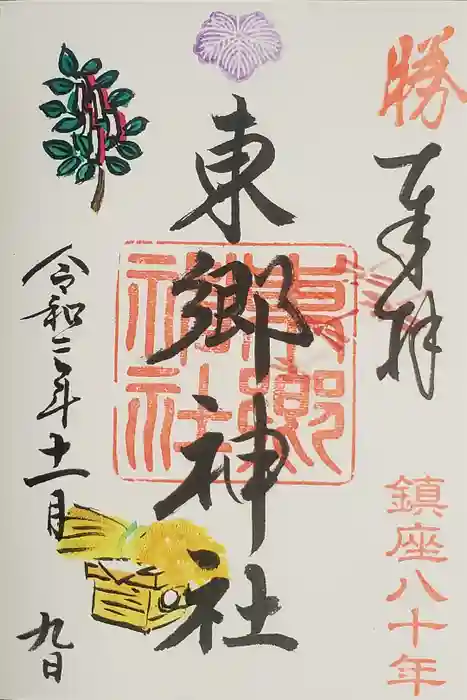 勝
奉拝
鎮座八十年
東郷神社
東郷神社
令和二年十一月九日